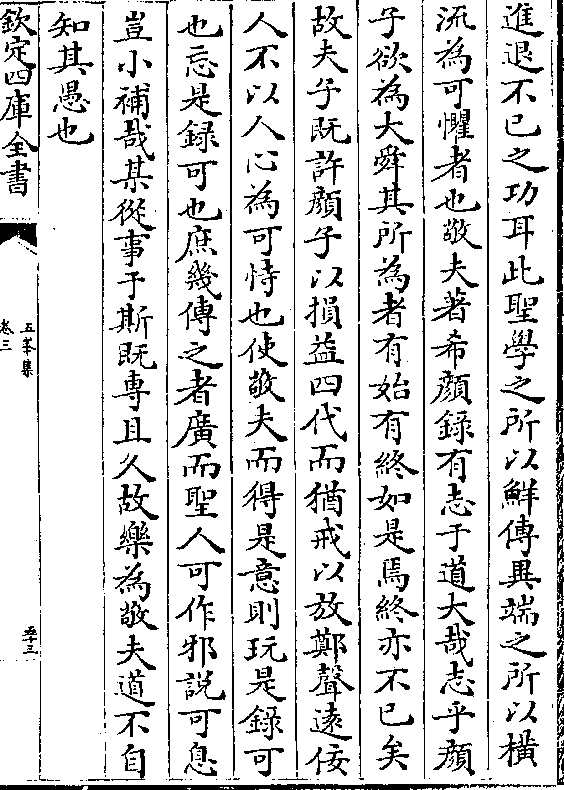 進退不已之功耳此聖學之所以鮮傳異端之所以橫
流為可懼者也敬夫著希顔錄有志于道大哉志乎顔
子欲為大舜其所為者有始有終如是焉終亦不已矣
故夫子既許顔子以損益四代而猶戒以放鄭聲遠佞
人不以人心為可恃也使敬夫而得是意則玩是錄可
也忘是録可也庶幾傳之者廣而聖人可作邪說可息
豈小補哉某從事于斯既專且久故樂為敬夫道不自
知其愚也
欽定四庫全書
五峯集
卷三
五十三